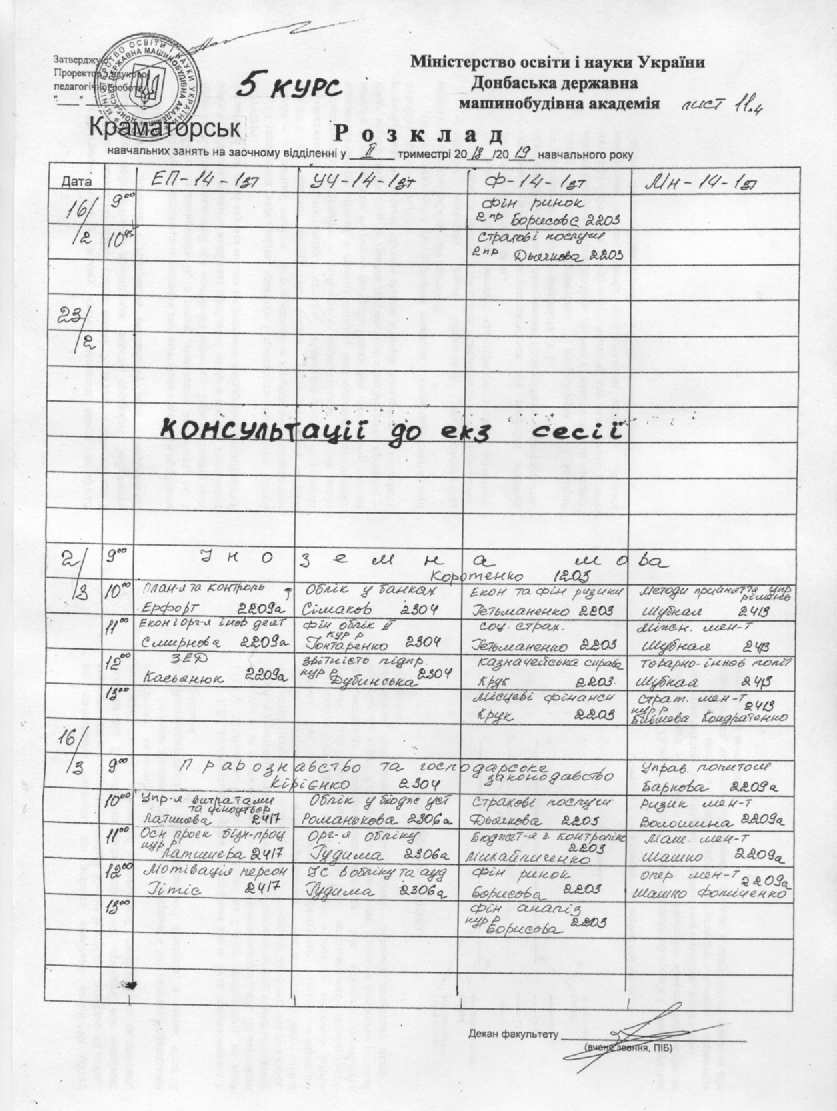 Затверджую
Проректор з науково
педагогічної роботи
МІНІСТЕРСТВО ОСВІТИ І НАУКИ УКРАЇНИ
5 КУРС
Міністерство освіти і науки України
Донбаська державна
машинобудівна академія лист 11.4
Краматорськ
Розклад
навчальних занять на заочному відділенні у II триместрі 2018/2019 навчального року
Дата ЕП-14-1зт УЧ-14-1зт Ф-14-1зт Мн-14-1зт
16/2 9⁰⁰ Фін ринок
2 пр Борисова 2203
10⁴⁵ Страхові послуги
2 пр Дьякова 2203
23/2
КОНСУЛЬТАЦІЇ до екз сесії
2/3 9⁰⁰ Іноземна мова
Коротенко 1203
10⁰⁰ План-я та контроль Облік у банках Екон та фін ризики Методи прийняття упр рішень
Ерфорт 2209а Сімаков 2304 Гетьманенко 2203 Шубная 2413
11⁰⁰ Екон і орг-я іннов деят Фін облік II Соц. страх. Міжн. мен-т
Смирнова 2209а кур р Гонтаренко 2304 Гетьманенко 2203 Шубная 2413
12⁰⁰ ЗЕД Звітність підпр. Казначейська справа Товарно-іннов політ
Касьянюк 2209а кур р Дубинська 2304 Крук 2203 Шубная 2413
13⁰⁰ Місцеві фінанси Страт. мен-т 2413
Крук 2203 кур р Кондратенко
16/3 9⁰⁰ Правознавство та господарське законодавство Управ. попитом
Кірієнко 2304 Баркова 2209а
10⁰⁰ Упр-я витратами та ціноутвор Облік у бюдж уст Страхові послуги Ризик мен-т
Латишева 2417 Романькова 2306а Дьякова 2203 Волошина 2209а
11⁰⁰ Осн проек бізн-проц Орг-я обліку Бюджет-я і контролінг Маш. мен-т
кур р Латишева 2417 Гудима 2306а Михайличенко 2203 Шашко 2209а
12⁰⁰ Мотівація персон ІС в обліку та ауд Фін ринок Опер мен-т
Гітіс 2417 Гудима 2306а Борисова 2203 Шашко Фоміченко 2209а
13⁰⁰ Фін аналіз
кур р Борисова 2203
Декан факультету
(вчене звання, ПІБ)